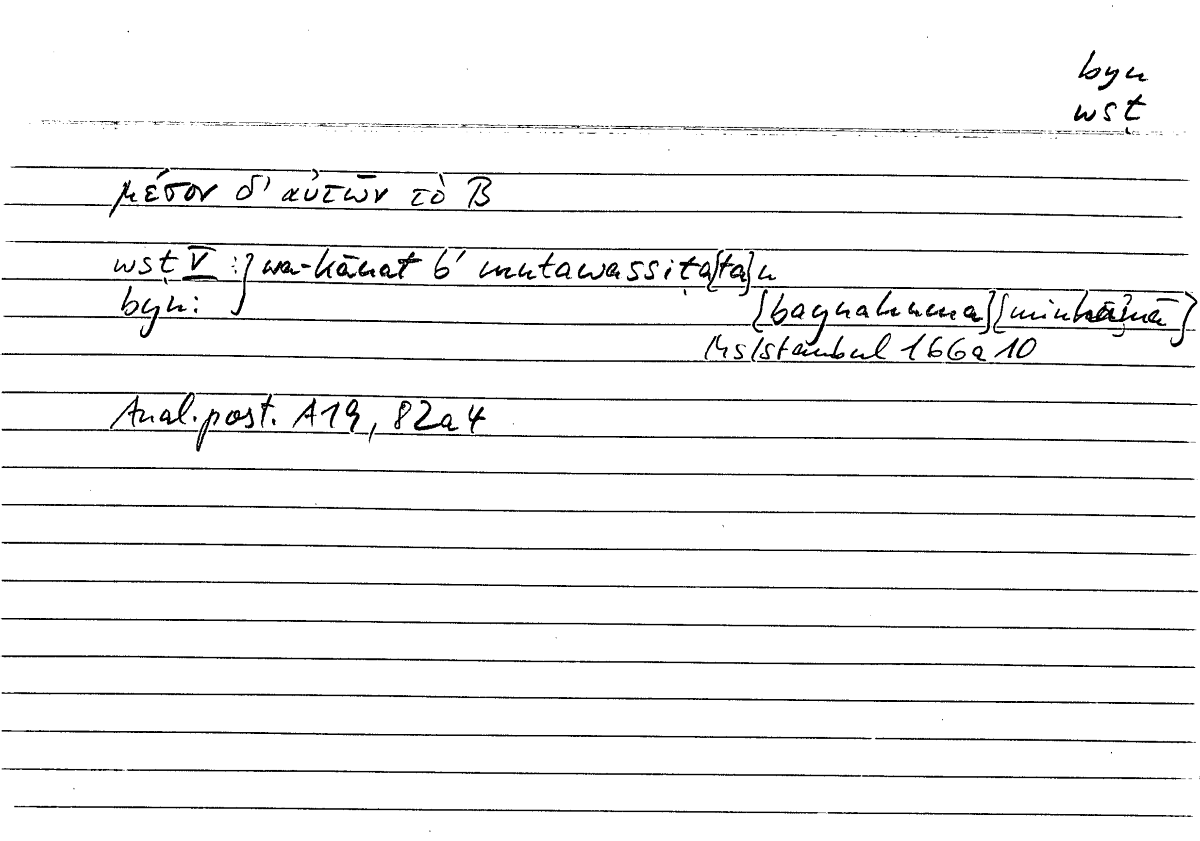 byn
wsṭ
μέσον δ' αὐτῶν τὸ B
wsṭ V :} wa-kānat b' mutawassiṭa[ta]n
byn:
[baynahuma]
Ms Istanbul 166a10
Anal. post. A19, 82a4